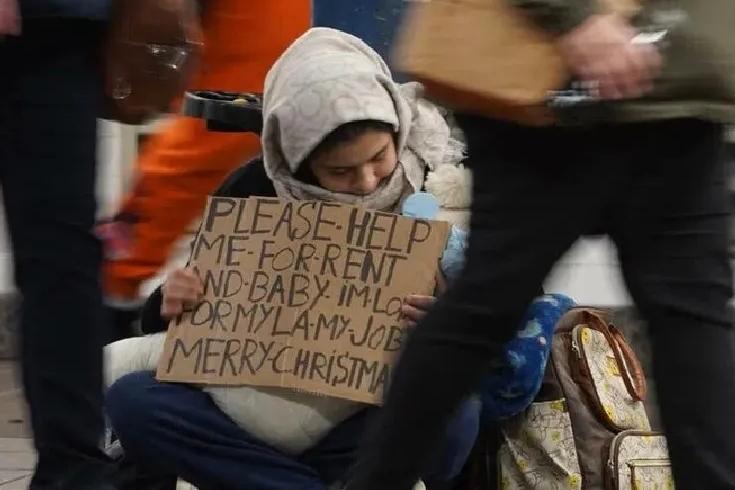 PLEASE·HELP
ME·FOR·RENT
AND·BABY·IM·LO
FORMYLA·MY·JOB
MERRY·CHRISTMA